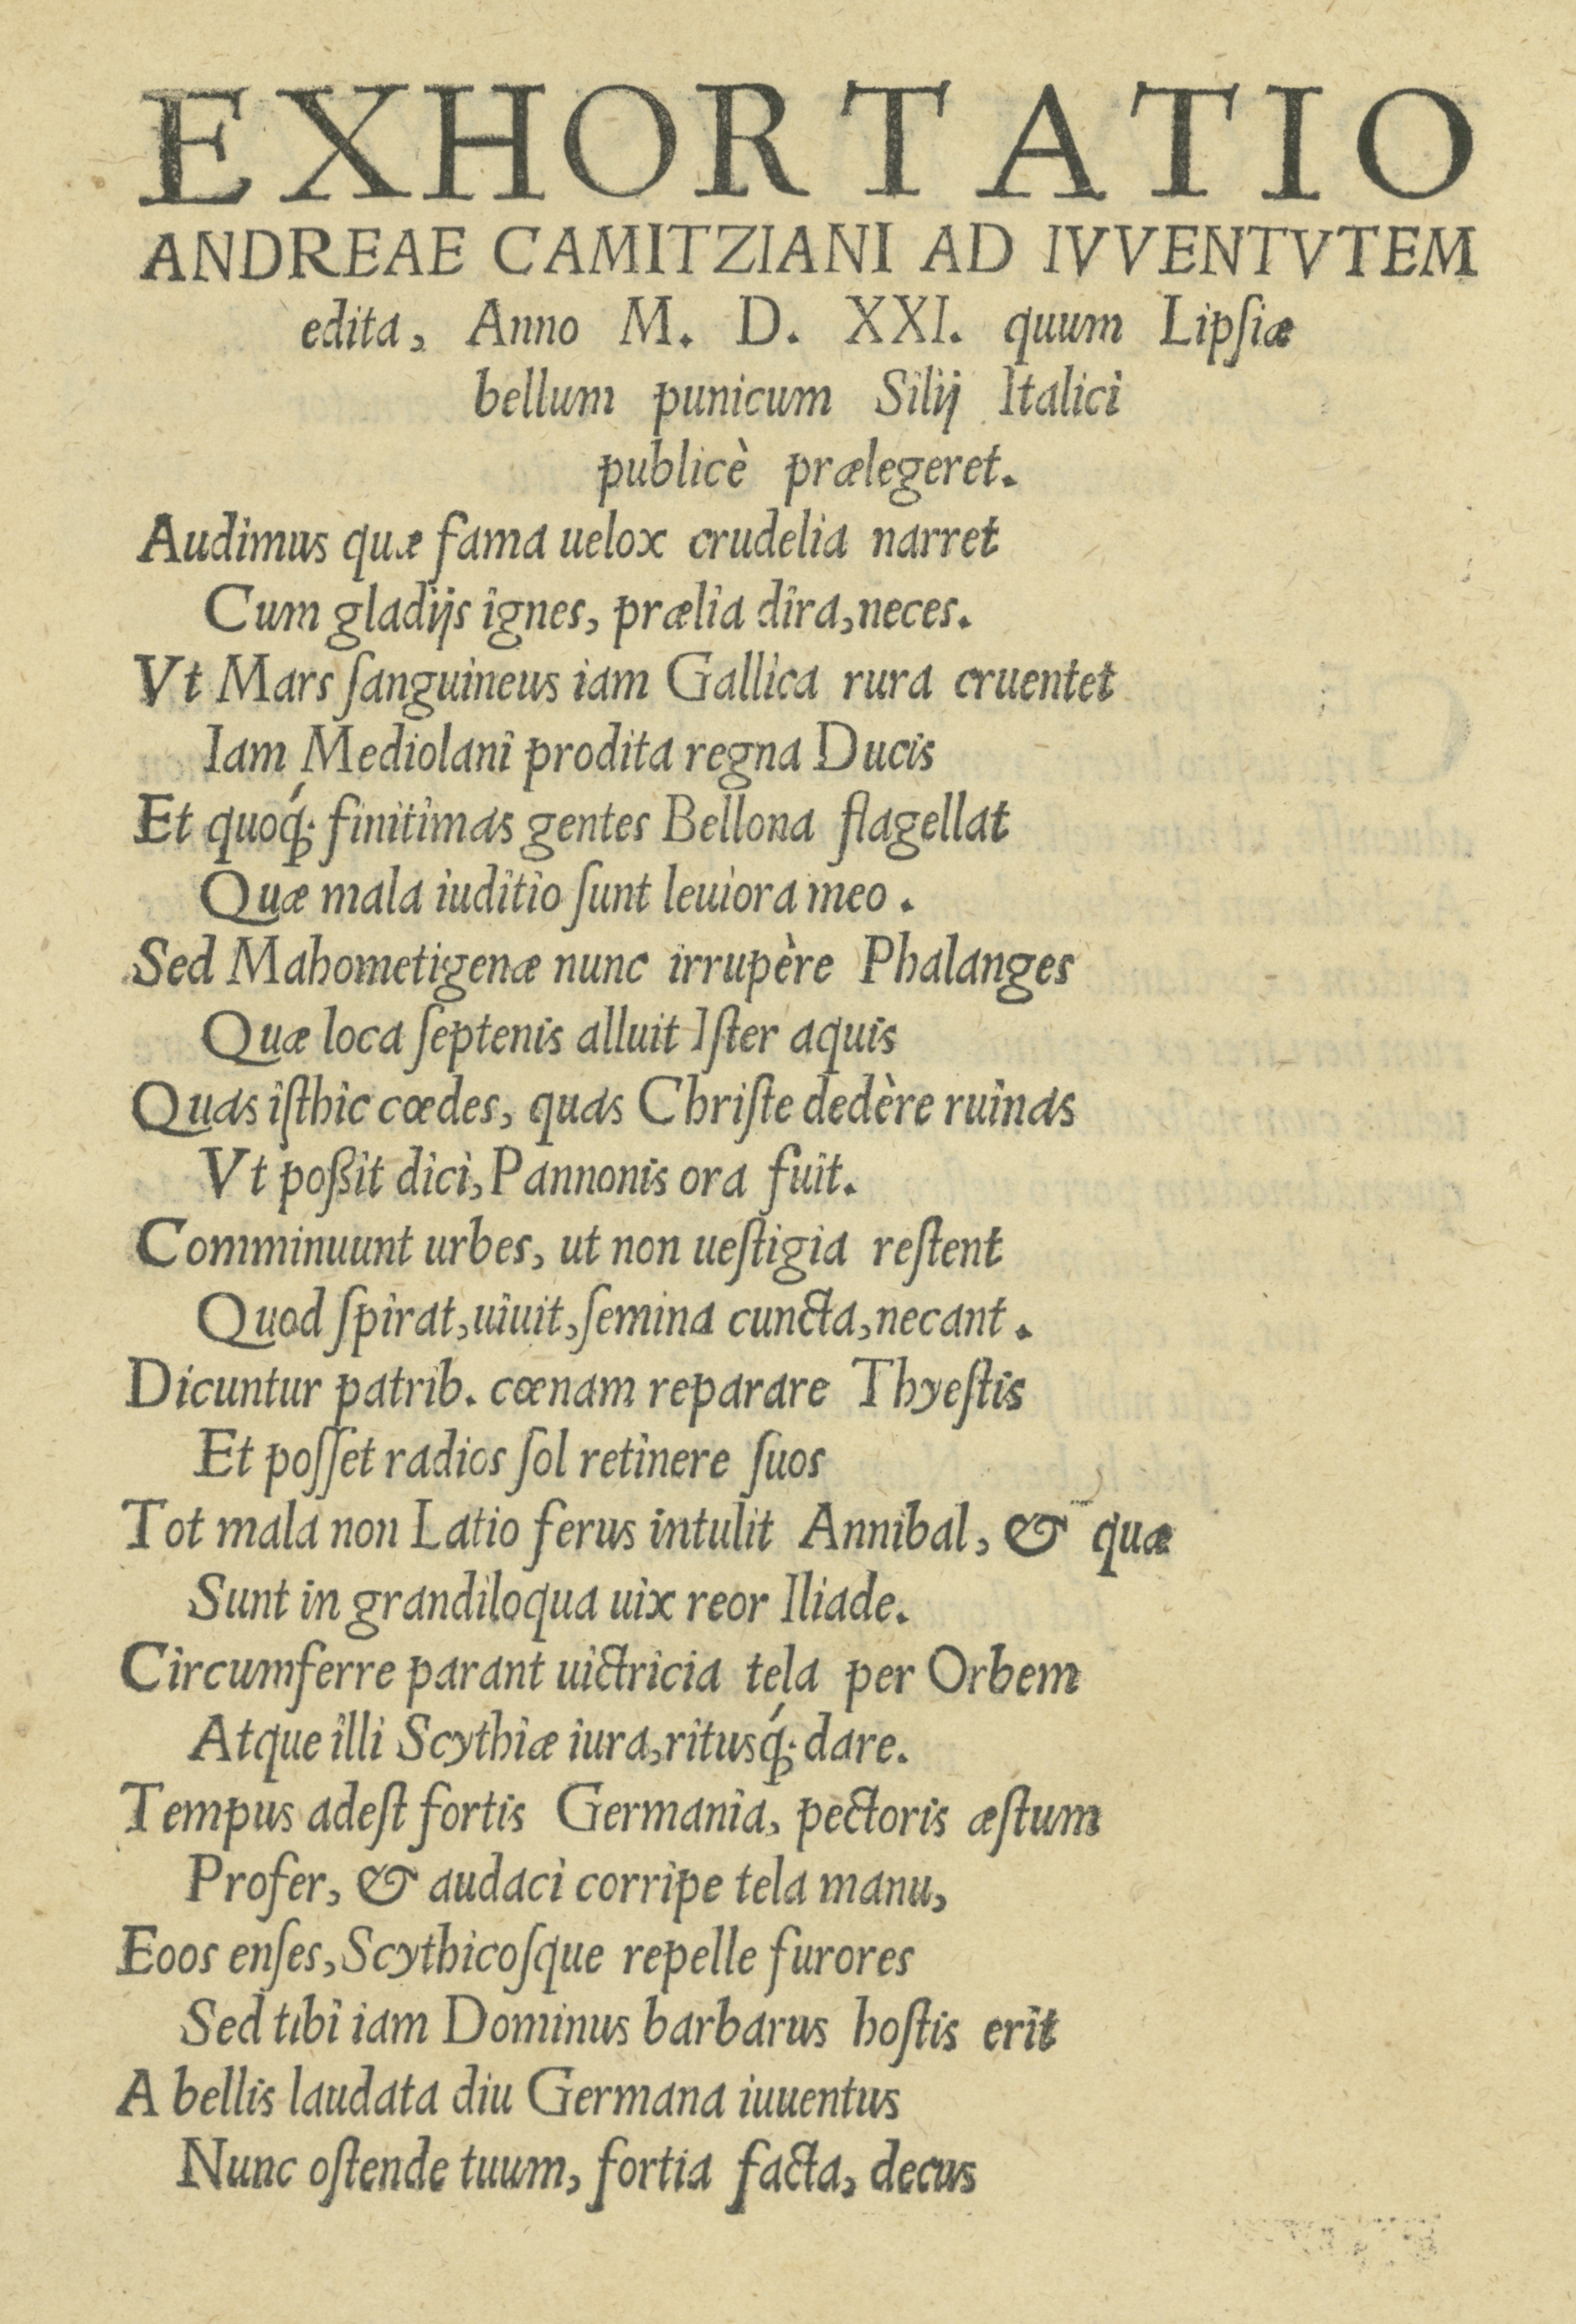 EXHORTATIO
ANDREAE CAMITZIANI AD IVVENTVTEM
edita, Anno M. D. XXI. quum Lipſiæ
bellum punicum Silij Italici
publicè prælegeret.
Audimus quæ fama uelox crudelia narret
Cum gladijs ignes, prælia dira, neces.
Vt Mars ſanguineus iam Gallica rura cruentet
Iam Mediolani prodita regna Ducis
Et quoq́; finitimas gentes Bellona flagellat
Quæ mala iuditio ſunt leuiora meo.
Sed Mahometigenæ nunc irrupère Phalanges
Quæ loca ſeptenis alluit Iſter aquis
Quas iſthic cœdes, quas Chriſte dedère ruinas
Vt poßit dici, Pannonis ora fuit.
Comminuunt urbes, ut non ueſtigia reſtent
Quod ſpirat, uiuit, ſemina cuncta, necant.
Dicuntur patrib. cœnam reparare Thyeſtis
Et poſſet radios ſol retinere ſuos
Tot mala non Latio ferus intulit Annibal, & quæ
Sunt in grandiloqua uix reor Iliade.
Circumferre parant uictricia tela per Orbem
Atque illi Scythiæ iura, ritusq́; dare.
Tempus adeſt fortis Germania, pectoris æſtum
Profer, & audaci corripe tela manu,
Eoos enſes, Scythicoſque repelle furores
Sed tibi iam Dominus barbarus hoſtis erit
A bellis laudata diu Germana iuuentus
Nunc oſtende tuum, fortia facta, decus